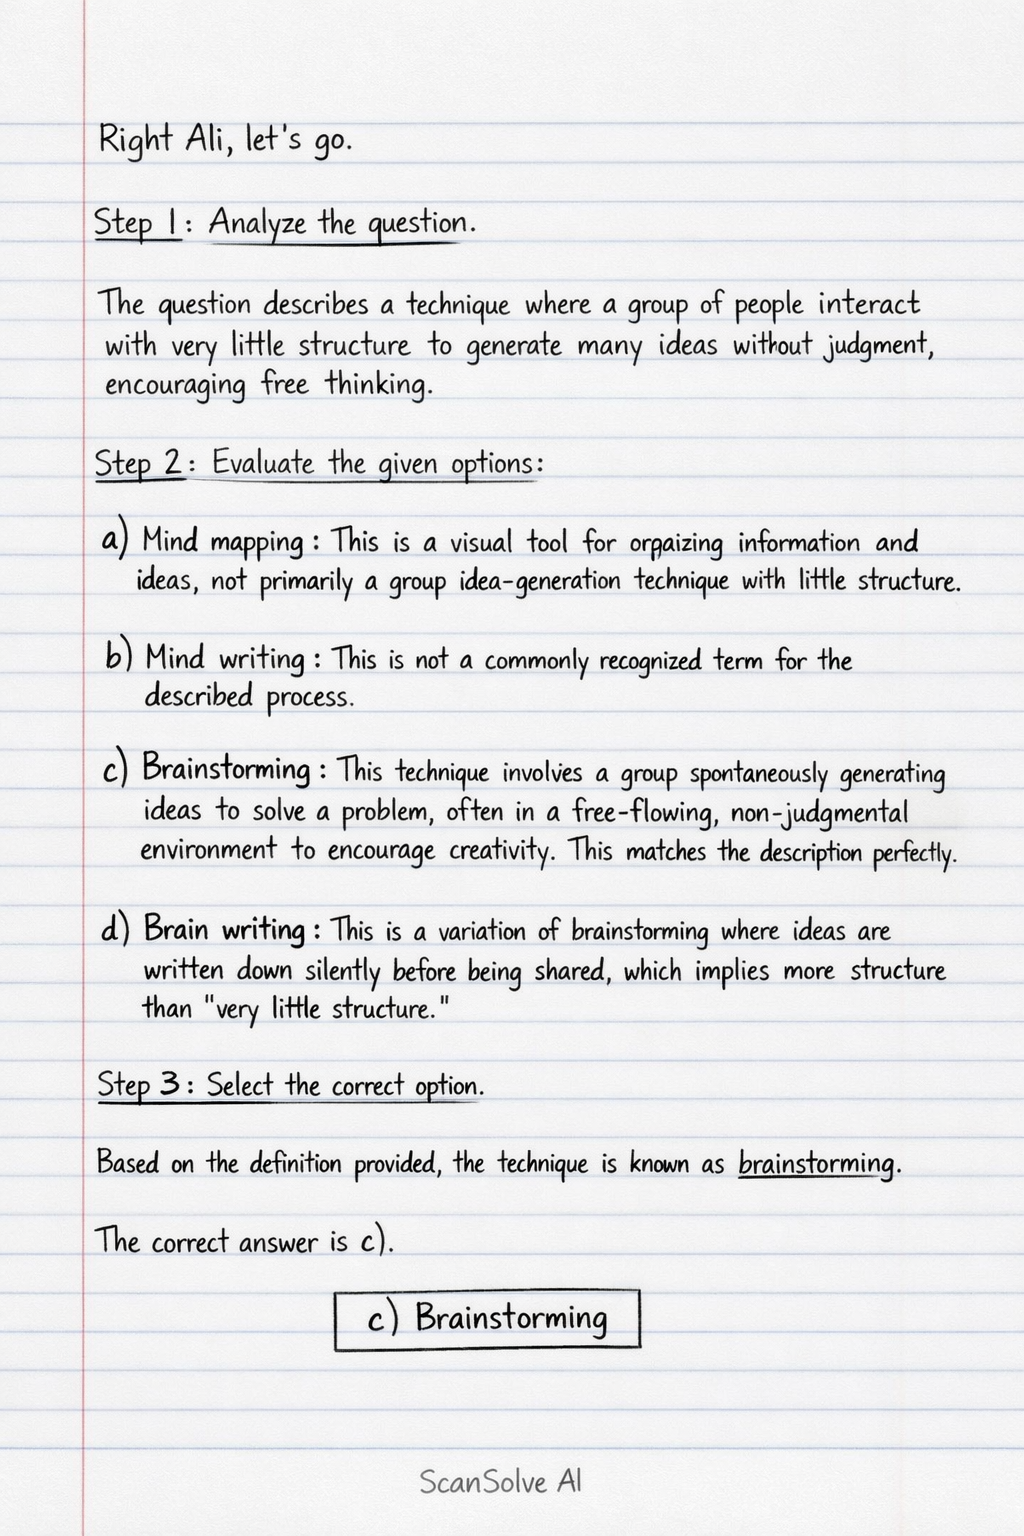 Right Ali, let's go.
Step 1: Analyze the question.
The question describes a technique where a group of people interact
with very little structure to generate many ideas without judgment,
encouraging free thinking.
Step 2: Evaluate the given options:
a) Mind mapping: This is a visual tool for orpaizing information and
ideas, not primarily a group idea-generation technique with little structure.
b) Mind writing: This is not a commonly recognized term for the
described process.
c) Brainstorming: This technique involves a group spontaneously generating
ideas to solve a problem, often in a free-flowing, non-judgmental
environment to encourage creativity. This matches the description perfectly.
d) Brain writing: This is a variation of brainstorming where ideas are
written down silently before being shared, which implies more structure
than "very little structure."
Step 3: Select the correct option.
Based on the definition provided, the technique is known as brainstorming.
The correct answer is c).
c) Brainstorming
ScanSolve AI